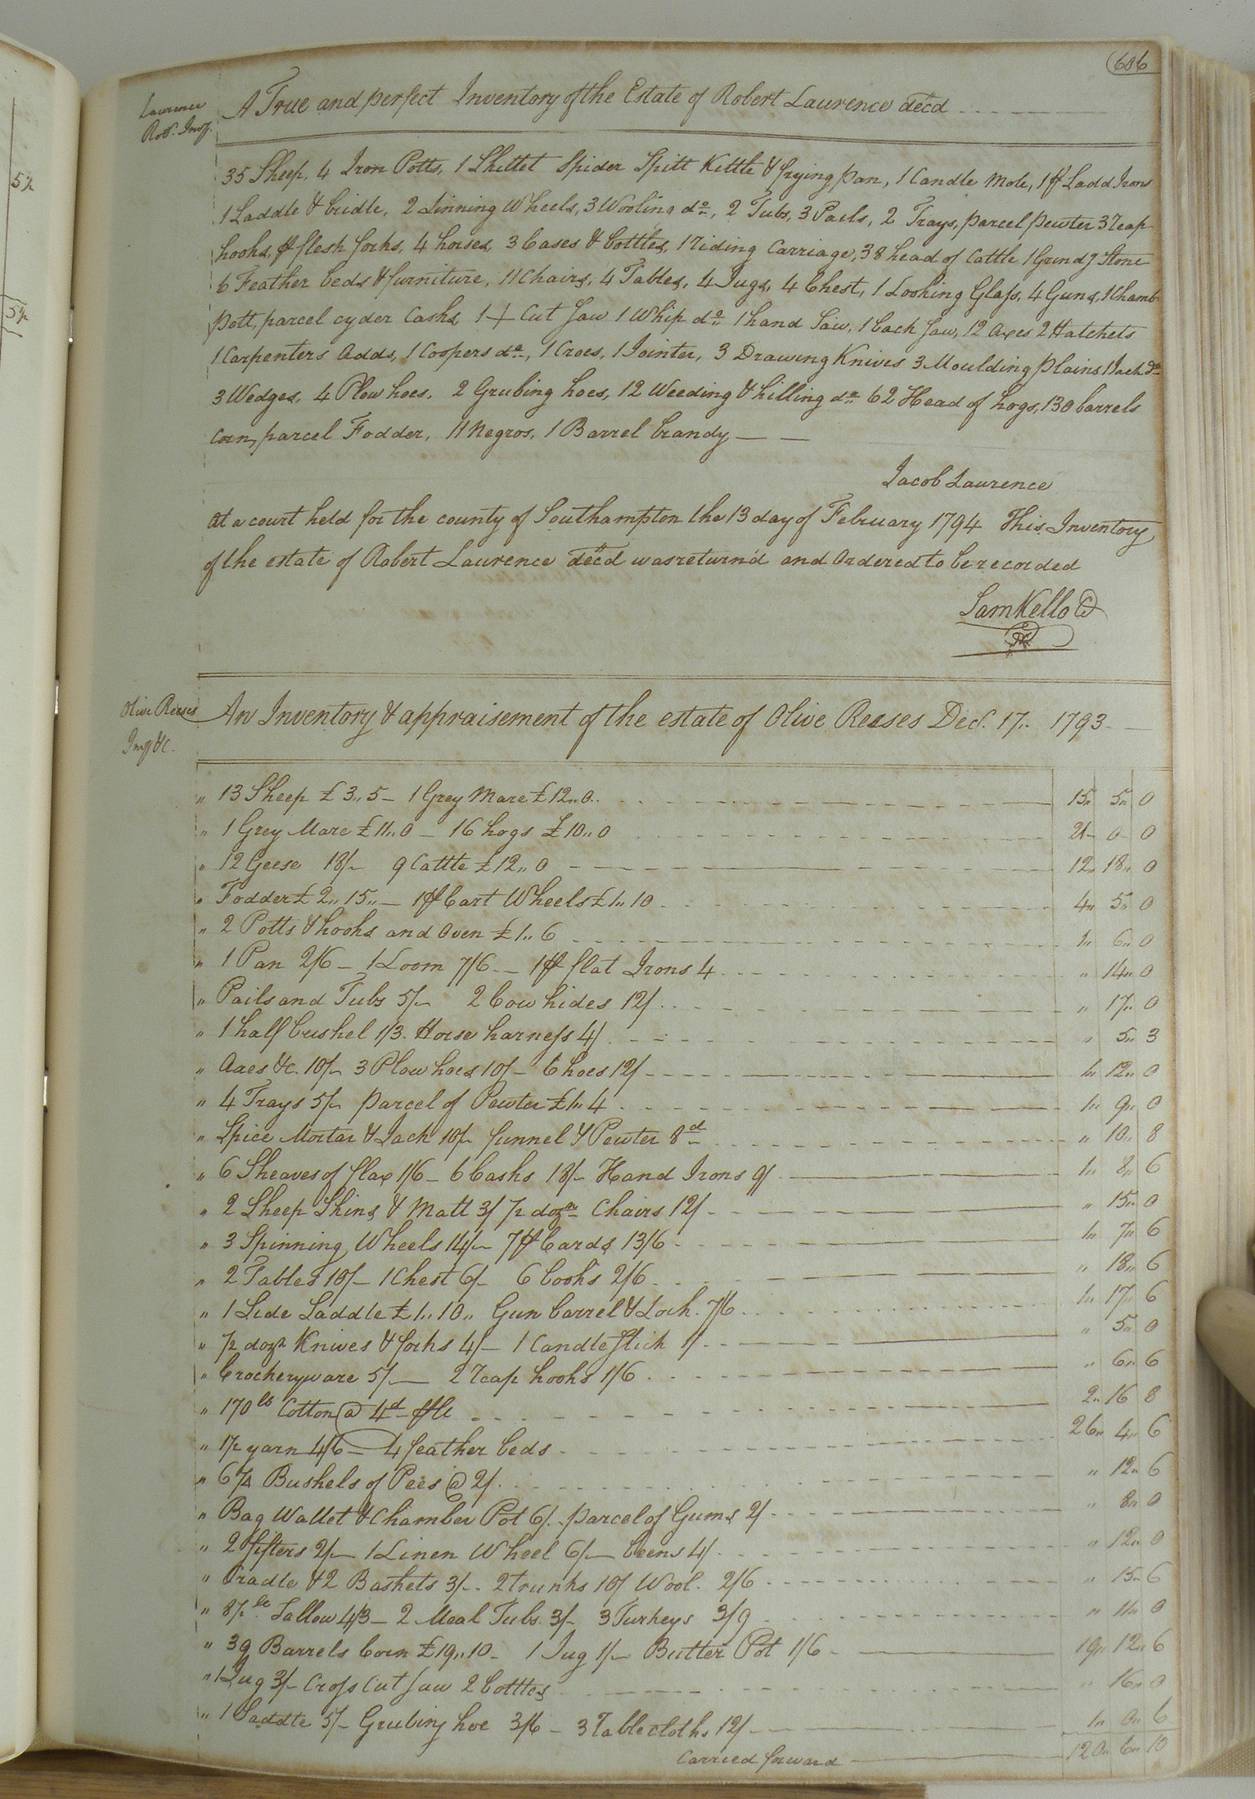 606
Laurence
Rob.t Inv.y
A True and perfect Inventory of the Estate of Robert Laurence dec'd
35 Sheep, 4 Iron Potts, 1 Skillet Spider Spitt Kittle & frying pan, 1 Candle Mole, 1 pr Sadd Irons
1 Saddle & bridle, 2 Linning Wheels, 3 Wooling do, 2 Tubs, 3 Pails, 2 Trays, parcel pewter 3 reap
hooks, pr flesh forks, 4 horses, 3 Cases & bottles, 1 riding Carriage, 38 head of Cattle 1 Grindg Stone
6 Feather beds & furniture, 11 Chairs, 4 Tables, 4 Jugs, 4 Chest, 1 Looking Glass, 4 Guns, 1 Chambr
pott, parcel cyder Casks, 1 + Cut Saw 1 Whip do 1 hand Saw, 1 back Saw, 12 Axes 2 Hatchets
1 Carpenters Adds, 1 Coopers do, 1 Croes, 1 Jointer, 3 Drawing Knives 3 Moulding plains 1 Jack do
3 Wedges, 4 Plow hoes, 2 Grubing hoes, 12 Weeding & hilling do 62 Head of hogs, 130 barrels
Corn, parcel Fodder, 11 Negros, 1 Barrel brandy
Jacob Laurence
At a court held for the county of Southampton the 13 day of February 1794 This Inventory
of the estate of Robert Laurence dec'd was return'd and Ordered to be recorded
Sam Kello
Olive Reeses
Invy &c.
An Inventory & appraisement of the estate of Olive Reeses Dec.r 17.. 1793
" 13 Sheep £3..5 – 1 Grey Mare £12..0.. 15" 5" 0
" 1 Grey Mare £11..0 – 16 hogs £10..0 21 – 0 – 0
" 12 Geese 18/– 9 Cattle £12..0 12" 18" 0
" Fodder £2..15.. – 1 pr Cart Wheels £1..10 4" 5" 0
" 2 Potts & hooks and Oven £1..6 1" 6" 0
" 1 Pan 2/6 – 1 Loom 7/6 – 1 pr flat Irons 4 " 14" 0
" Pails and Tubs 5/– 2 Cow hides 12/ " 17" 0
" 1 half bushel 1/3. Horse harness 4/ " 5" 3
" Axes &c. 10/– 3 Plow hoes 10/– 6 hoes 12/ 1" 12" 0
" 4 Trays 5/– parcel of Pewter £1..4 1" 9" 0
" Spice Mortar & Jack 10/– funnel & Pewter 8d " 10" 8
" 6 Sheaves of flax 1/6 – 6 Casks 18/– Hand Irons 9/ 1" 8" 6
" 2 Sheep Skins & Matt 3/ 1/2 dozn Chairs 12/ " 15" 0
" 3 Spinning Wheels 14/– 7 pr Cards 13/6 1" 7" 6
" 2 Tables 10/– 1 Chest 6/– 6 books 2/6 " 18" 6
" 1 Side Saddle £1..10.. Gun barrel & Lock. 7/6 1" 17" 6
" 1/2 dozn Knives & forks 4/– 1 Candlestick 1/ " 5" 0
" Crockeryware 5/– 2 reap hooks 1/6 " 6" 6
" 170 lb Cotton @ 4d 2" 16 8
" yarn 4/6 – 4 feather beds 26" 4" 6
" Bushels of Pees @ 2/ " 12" 6
" Bag Wallet & Chamber Pot 6/. parcel of Gums 2/ " 8" 0
" 2 sifters 2/– 1 Linen Wheel 6/– beens 4/ " 12" 0
" Cradle & 2 Baskets 3/– 2 trunks 10/ Wool. 2/6 " 15" 6
" Tallow 4/3 – 2 Meal Tubs. 3/– 3 Turkeys 3/9 " 11" 0
" 39 Barrels Corn £19..10 – 1 Jug 1/– Butter Pot 1/6 19" 12" 6
" 1 Jug 3/– Cross Cut Saw 2 bottles " 16" 0
" 1 Saddle 5/– Grubing hoe 3/6 – 3 Tablecloths 12/ 1" 0" 6
Carried forward 120" 6" 10